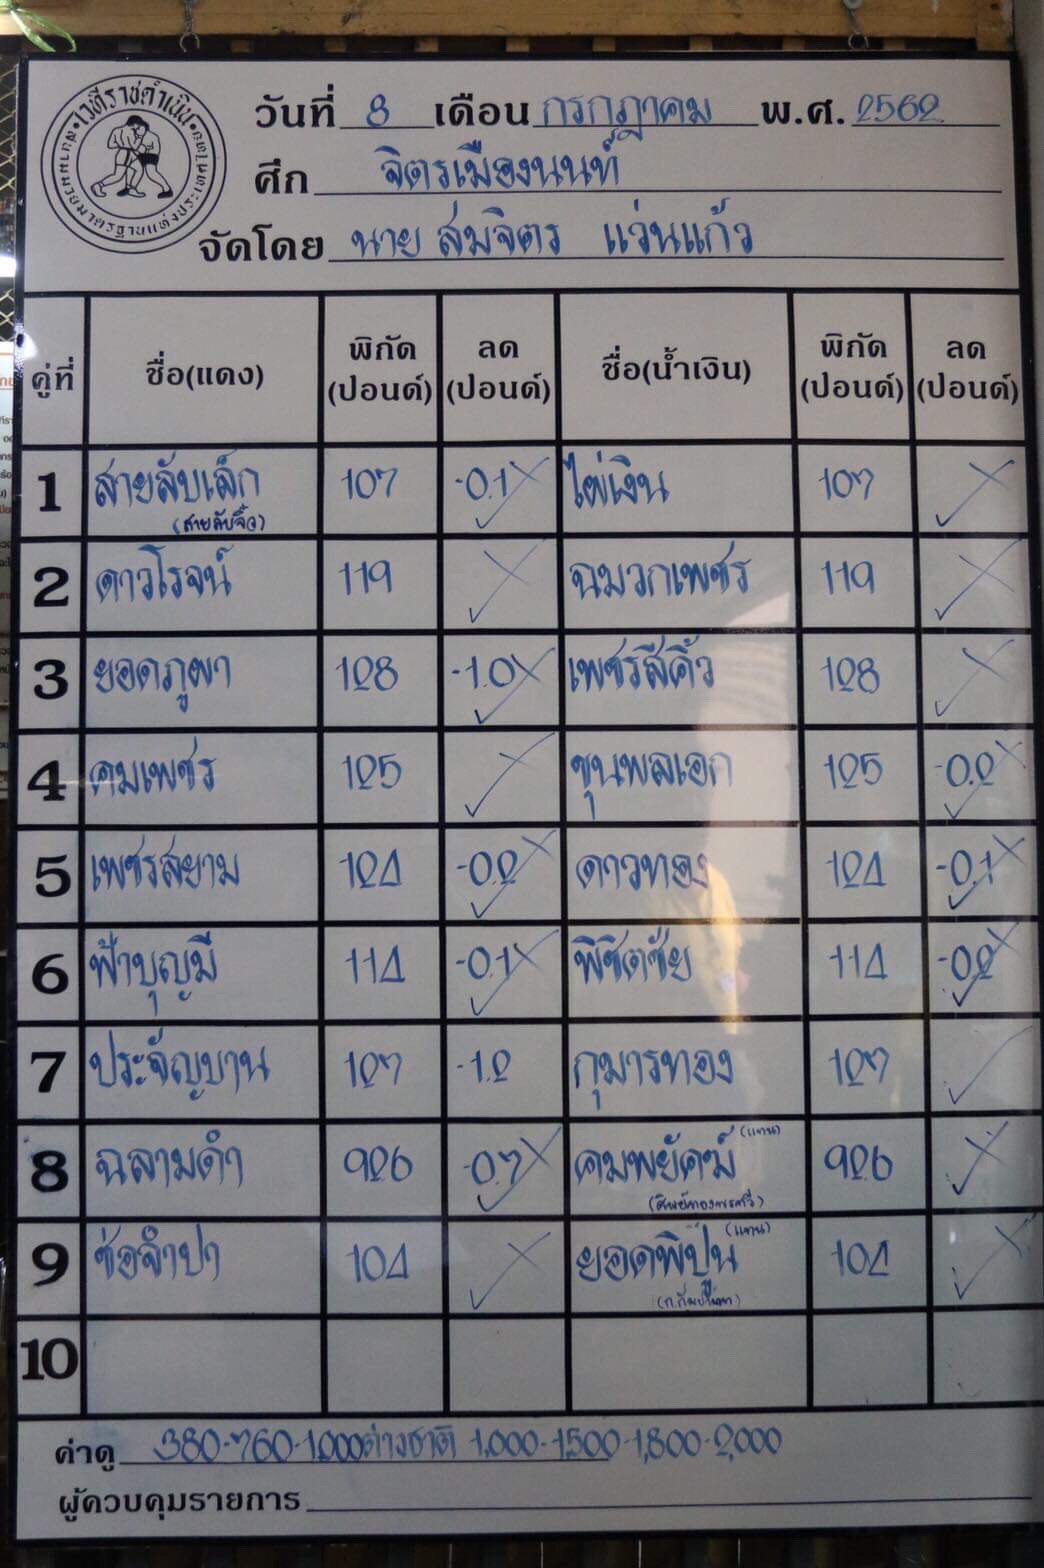 เวทีราชดำเนิน
วันที่ 8 เดือน กรกฎาคม พ.ศ. 2562
ศึก จิตรเมืองนนท์
จัดโดย นาย สมจิตร แว่นแก้ว
คู่ที่ ชื่อ(แดง) พิกัด (ปอนด์) ลด (ปอนด์) ชื่อ(น้ำเงิน) พิกัด (ปอนด์) ลด (ปอนด์)
1 สายลับเล็ก 107 -0.1 ไผ่เงิน 107
(สายลับจิ๋ว)
2 ดาวโรจน์ 119 ฉมวกเพชร 119
3 ยอดภูผา 128 -1.0 เพชรสีคิ้ว 128
4 คมเพชร 125 ขุนพลเอก 125 -0.2
5 เพชรสยาม 124 -0.2 ดาวทอง 124 -0.1
6 ฟ้าบุญมี 114 -0.1 พิชิตชัย 114 -0.2
7 ประจัญบาน 127 -1.2 กุมารทอง 127
8 ฉลามดำ 126 -0.7 คมพยัคฆ์ (แทน) 126
9 ช่อจำปา 104 ยอดพิปูน (แทน) 104
10
ค่าดู 380-760-1,000 ต่างชาติ 1,000-1,500-1,800-2,000
ผู้ควบคุมรายการ